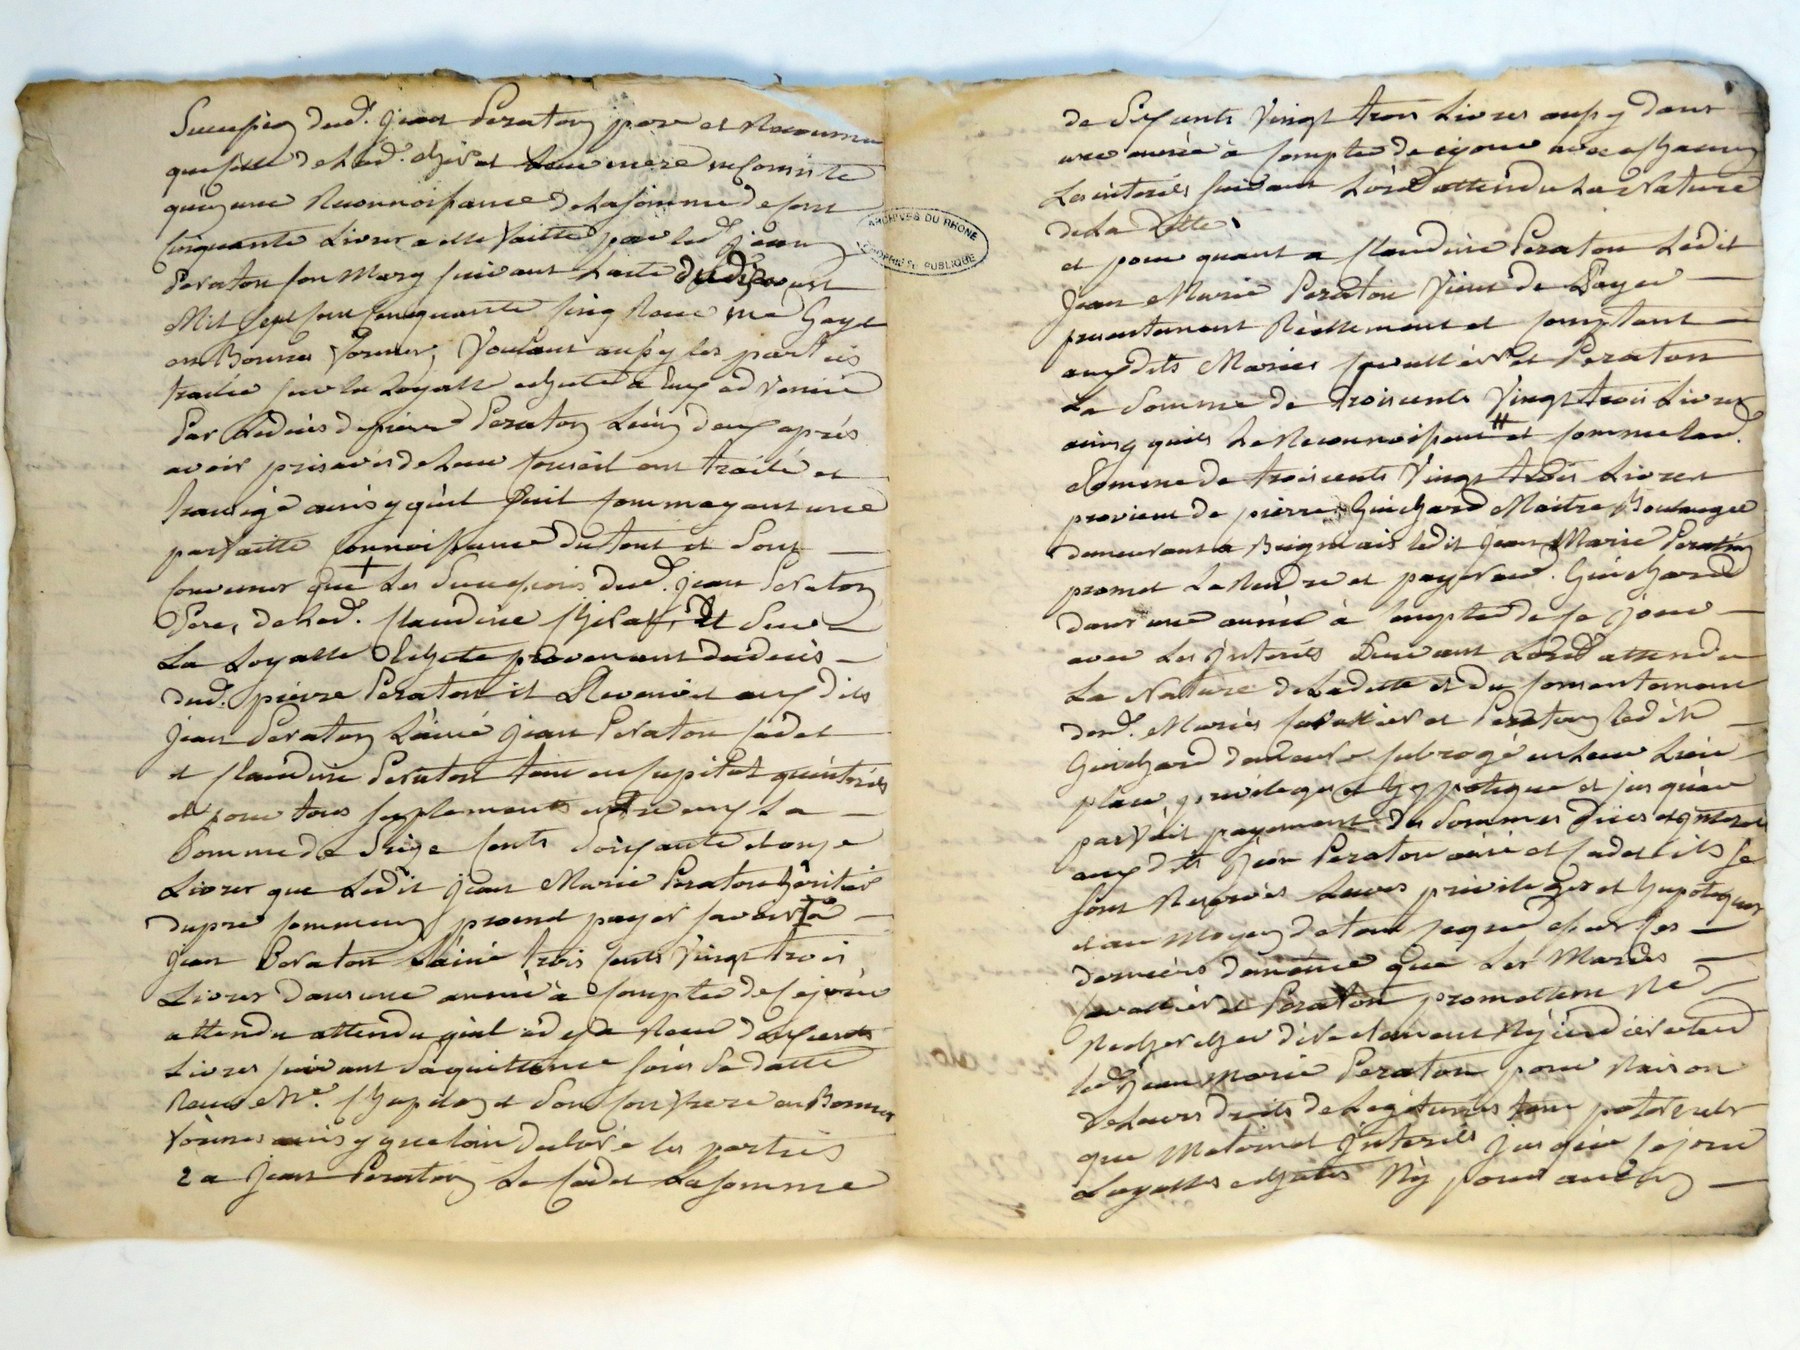 Succession dud. Jean Peraton pere et
que de lad. leur mere
qu'en une Reconnoissance de la somme de cent
Cinquante Livres a elle faitte par led. Jean
Peraton son Mary suivant l'acte du dix aoust
Mil sept cent cinquante cinq Receu me Gayet
en Bonnes formes, Voulant aussy les parties
traiter sur la Loyatte echute à Eux advenüe
Par Le décès de pierre Peraton L'un d'eux après
avoir pris avis de Leur Conseil ont traité et
transigé ainsy qu'il suit comme ayant une
parfaitte connoissance du tout et sont
Convenus que Les Successions dud. Jean Peraton
Pere, de lad. Claudine et sur
La Loyatte Echute provenant du décès
dud. pierre Peraton il Revenoit aux dits
Jean Peraton L'ainé Jean Peraton Cadet
et Claudine Peraton tant en Capital qu'intérêts
et pour tous suplements entre eux La
Somme de Seize Cents Soixante et onze
Livres que Ledit Jean Marie Peraton héritier
du pre commun promet payer savoir à
Jean Peraton L'ainé trois Cents Vingt trois
Livres dans une année à Compter de ce jour
attendu attendu qu'il a deja Receu
Livres suivant Sa quittance sous Sa datte
Receu Me. Chapuy et Son Confrere en Bonnes
formes ainsy que l'on déclaré les parties
2 a Jean Peraton Le Cadet La somme
de Six cents Vingt trois Livres aussy dans
une année à Compter de ce jour avec
Les intérêts suivant L'ord attendu La Nature
de La Dette
et pour quant a Claudine Peraton Ledit
Jean Marie Peraton Vient de Payer
presentement Réellement et comptant
auxdits Mariés Cavallier et Peraton
La Somme de trois cents Vingt trois Livres
ainsy qu'ils Le Reconnoissent et comme lad.
Somme de trois cents Vingt trois Livres
provient de pierre Guichard Maitre Boulanger
demeurant a Brignais ledit Jean Marie Peraton
promet La Rendre et payer aud. Guichard
dans une année à Compter de ce jour
avec Les intérêts Suivant L'ord attendu
La Nature de La dette et du consentement
desd. Mariés Cavallier et Peraton ledit
Guichard demeure subrogé en Leur Lieu
place, privileges et hyppotèque et jusqu'au
parfait payement des Sommes dües et intérêts
auxdits Jean Peraton ainé et Cadet ils se
sont Reservés Leurs privileges et hypoteques
et au Moyen de tout ce que dessus Ces
derniers de même que Les Mariés
Cavallier et Peraton promettent Ne
Rechercher directement Ny indirectement
led. Jean Marie Peraton pour Raison
de Leurs droits de Legitimes tant paternels
que Maternels intérêts jusqu'à ce jour
Loyattes echutes Ny pour aucun
ARCHIVES DU RHONE
PROPRIÉTÉ PUBLIQUE